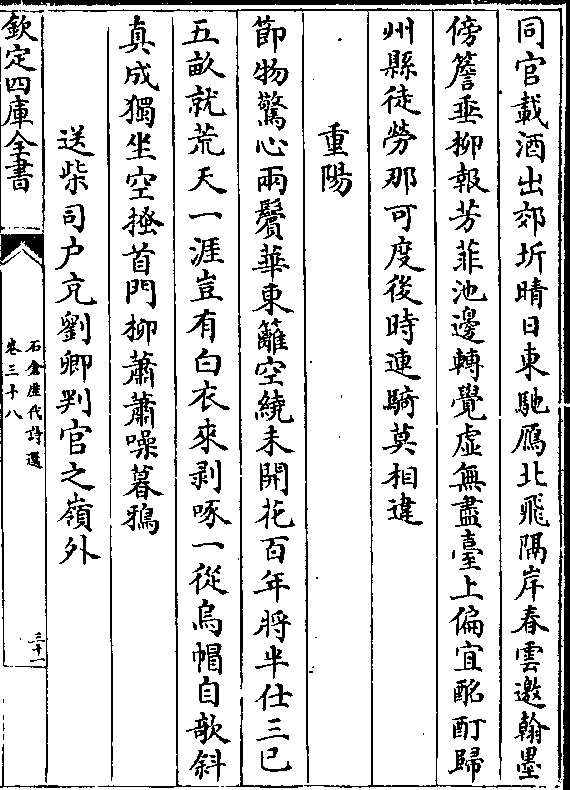 同官載酒出郊圻晴日東馳鴈北飛隔岸春雲邀翰墨
傍簷垂柳報芳菲池邊轉覺虚無盡臺上偏宜酩酊歸
州縣徒勞那可度後時連騎莫相違
重陽
節物驚心兩鬢華東籬空繞未開花百年將半仕三已
五畝就荒天一涯豈有白衣來剥啄一從烏帽自欹斜
真成獨坐空搔首門柳蕭蕭噪暮鴉
送柴司户充劉卿判官之嶺外
欽定四庫全書
石倉歴代詩選
卷三十八
三十一